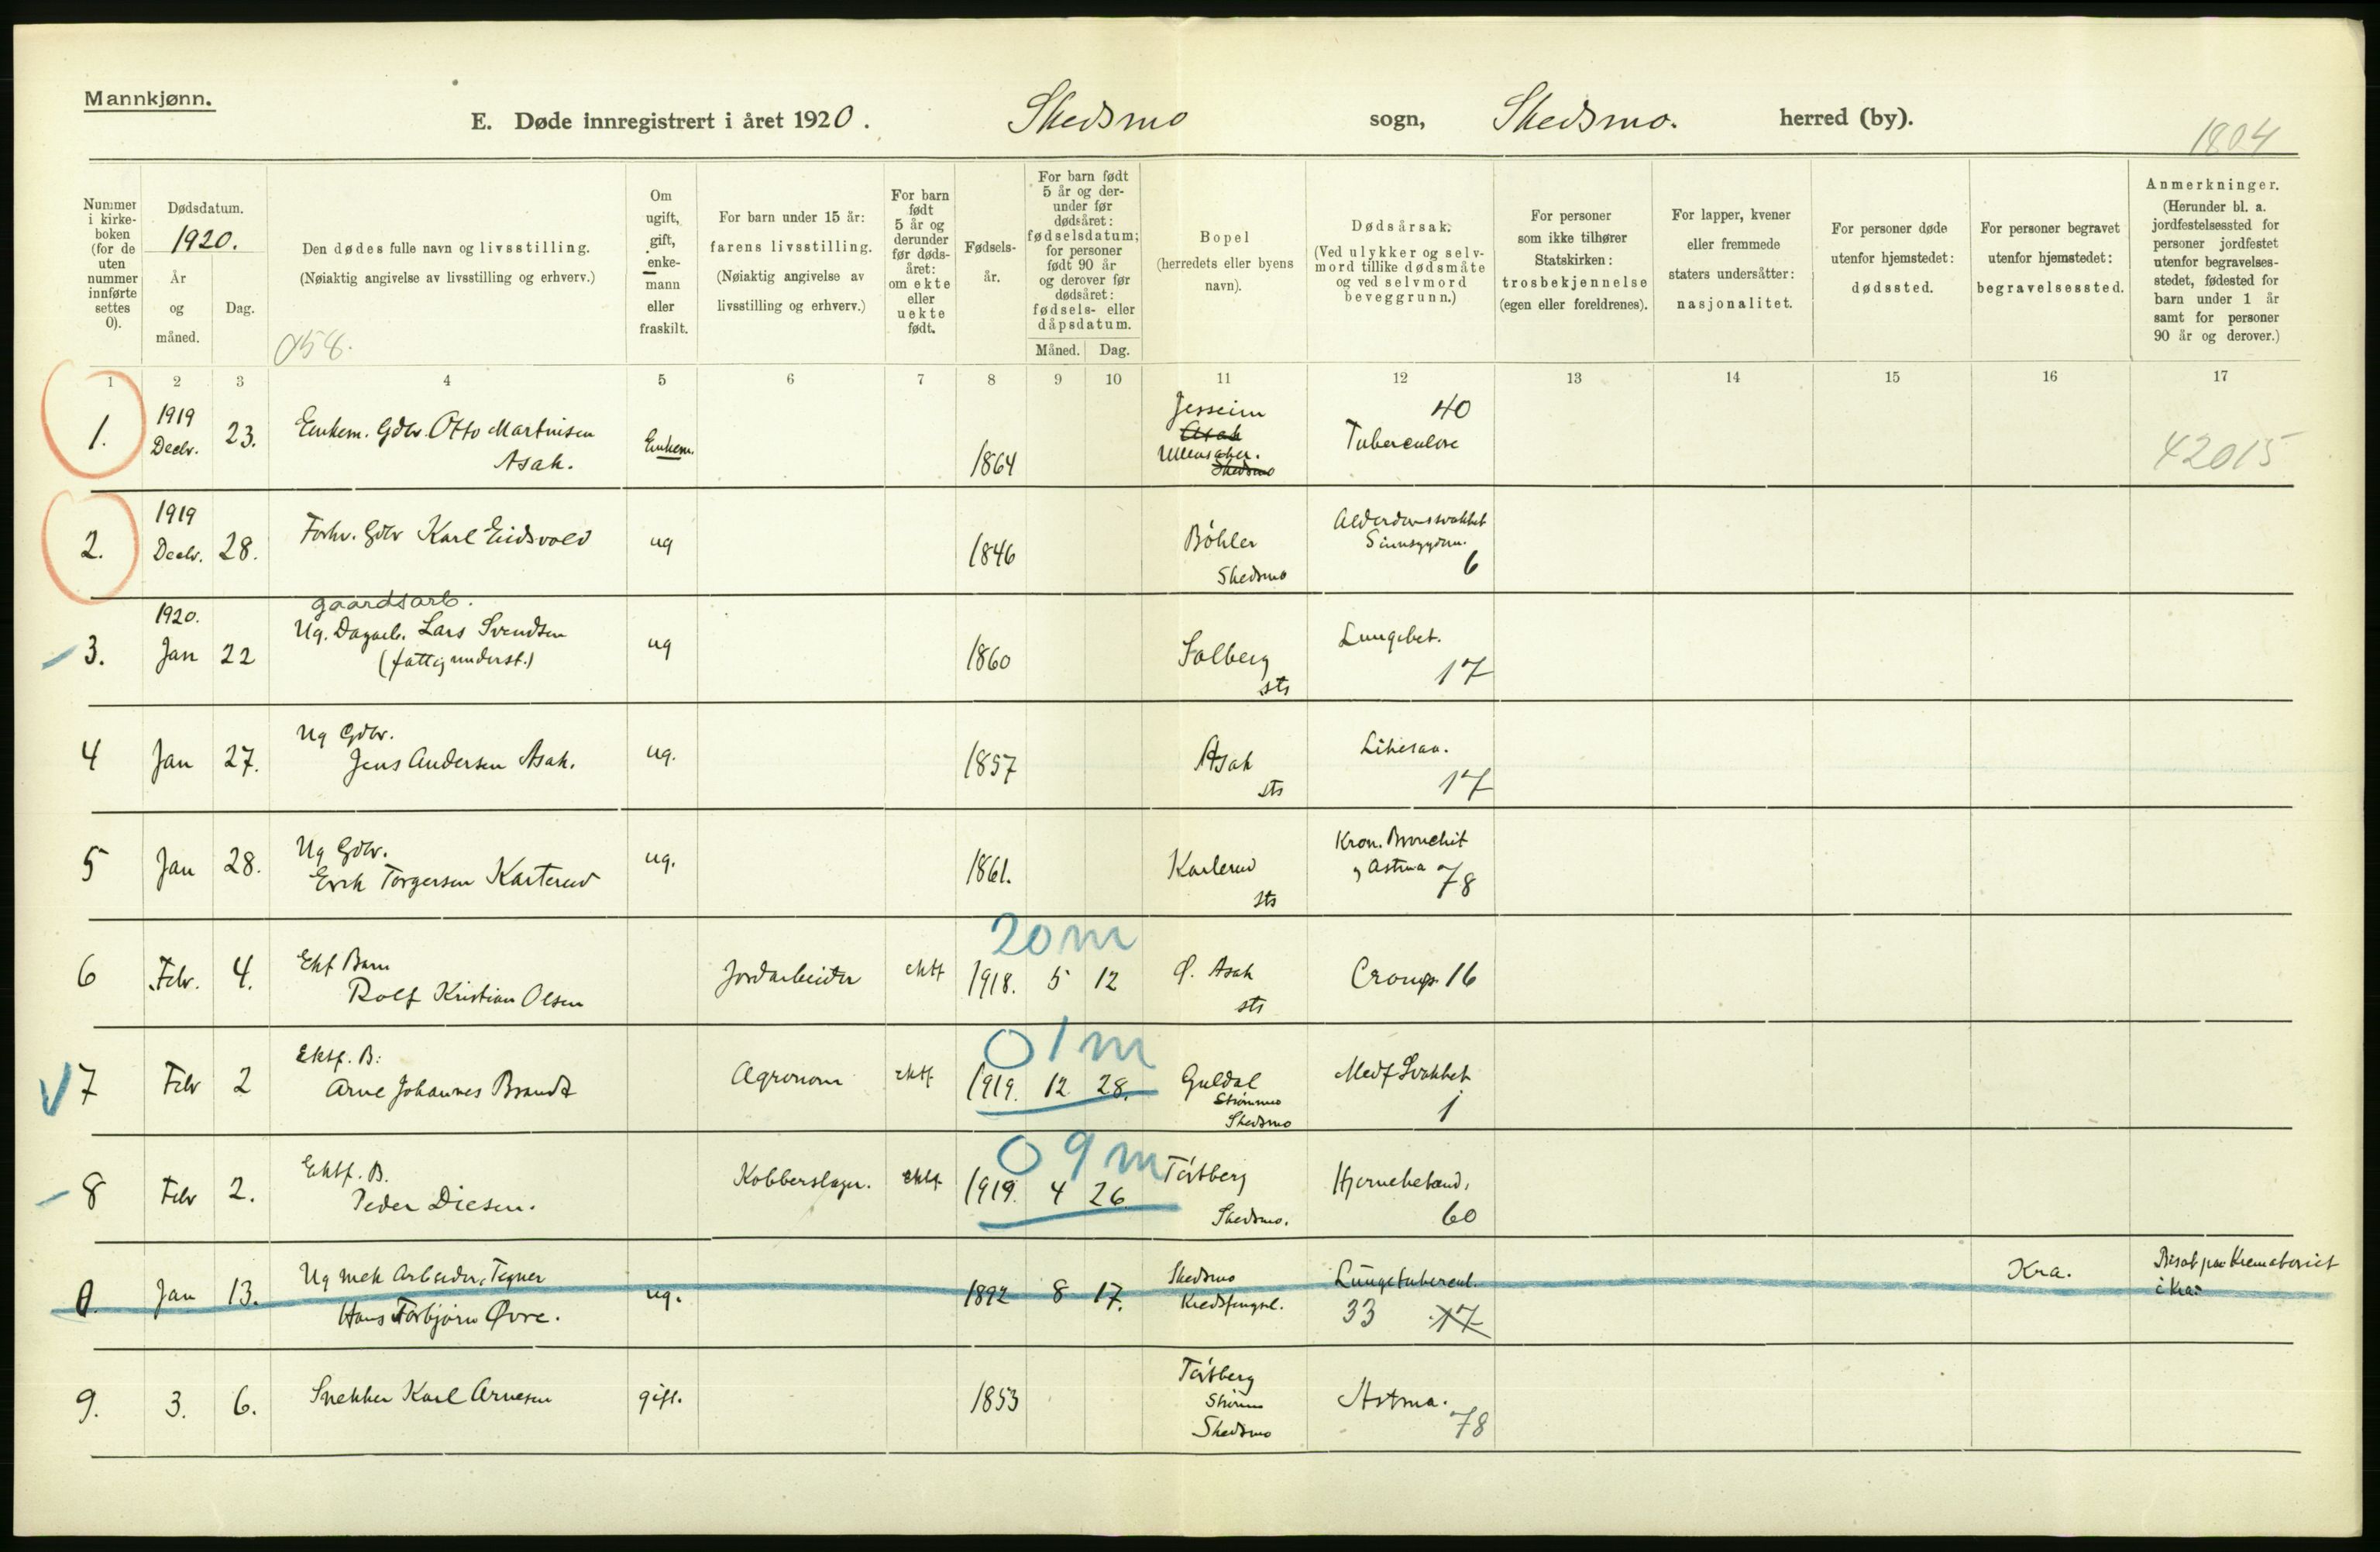 Mannkjønn.
E. Døde innregistrert i året 1920. Skedsmo sogn, Skedsmo. herred (by).
1804
Nummer i kirke-boken (for de uten nummer innførte settes 0).
Dødsdatum.
1920.
År og måned.
Dag.
Den dødes fulle navn og livsstilling.
(Nøiaktig angivelse av livsstilling og erhverv.)
058.
Om ugift, gift, enke-mann eller fraskilt.
For barn under 15 år: farens livsstilling.
(Nøiaktig angivelse av livsstilling og erhverv.)
For barn født 5 år og derunder før døds-året: om ekte eller uekte født.
Fødsels-år.
For barn født 5 år og der-under før dødsåret: fødselsdatum; for personer født 90 år og derover før dødsåret: fødsels- eller dåpsdatum.
Måned. Dag.
Bopel (herredets eller byens navn).
Dødsårsak. (Ved ulykker og selv-mord tillike dødsmåte og ved selvmord beveggrunn.)
For personer som ikke tilhører Statskirken: trosbekjennelse (egen eller foreldrenes).
For lapper, kvener eller fremmede staters undersåtter: nasjonalitet.
For personer døde utenfor hjemstedet: dødssted.
For personer begravet utenfor hjemstedet: begravelsessted.
Anmerkninger. (Herunder bl. a. jordfestelsessted for personer jordfestet utenfor begravelses-stedet, fødested for barn under 1 år samt for personer 90 år og derover.)
1 2 3 4 5 6 7 8 9 10 11 12 13 14 15 16 17
1. 1919 Decbr. 23. Enkem. Gdbr. Otto Martinsen Asak. Enkem. 1864 Jessheim Asak Ullensaker. Skedsmo 40 Tuberculose 42015
2. 1919 Decbr. 28. Forhv. Gdbr Karl Eidsvold ug 1846 Bøhler Skedsmo Alderdomssvakhet Sinnsygdom. 6
3. 1920. Jan 22 gaardsarb. Ug. Dagarb. Lars Svendsen (fattigunderst.) ug 1860 Solberg sts Lungebet. 17
4 Jan 27. Ug Gdbr. Jens Andersen Asak. ug. 1857 Asak sts 17
5 Jan 28. Ug Gdbr. Erik Torgersen Karterud ug. 1861. Karlerud sts Kron. Bronchit og Astma 78
20 m
6 Febr. 4. Ekt Barn Rolf Kristian Olsen Jordarbeider ektf 1918. 5 12 Ø. Asak sts Croup. 16
0 1 m
7 Febr 2 Ektf. B: Arne Johannes Brandt Agronom ektf 1919. 12 28. Guldal Strømmen Skedsmo Medf Svakhet 1
0 9 m
8 Febr 2. Ektf. B. Peder Diesen. Kobberslager. ektf 1919. 4 26. Tærtberg Skedsmo. Hjernebetænd. 60
0. Jan 13. Ug mek Arbeider, Tegner Hans Torbjørn Øvre. ug. 1892 8 17. Skedsmo Kredsfengsel. Lungetubercul. 33 17 Kra. Bisat paa Krematoriet i Kra.
9. 3. 6. Snekker Karl Arnesen gift. 1853 Tærtberg Strømm Skedsmo Astma. 78